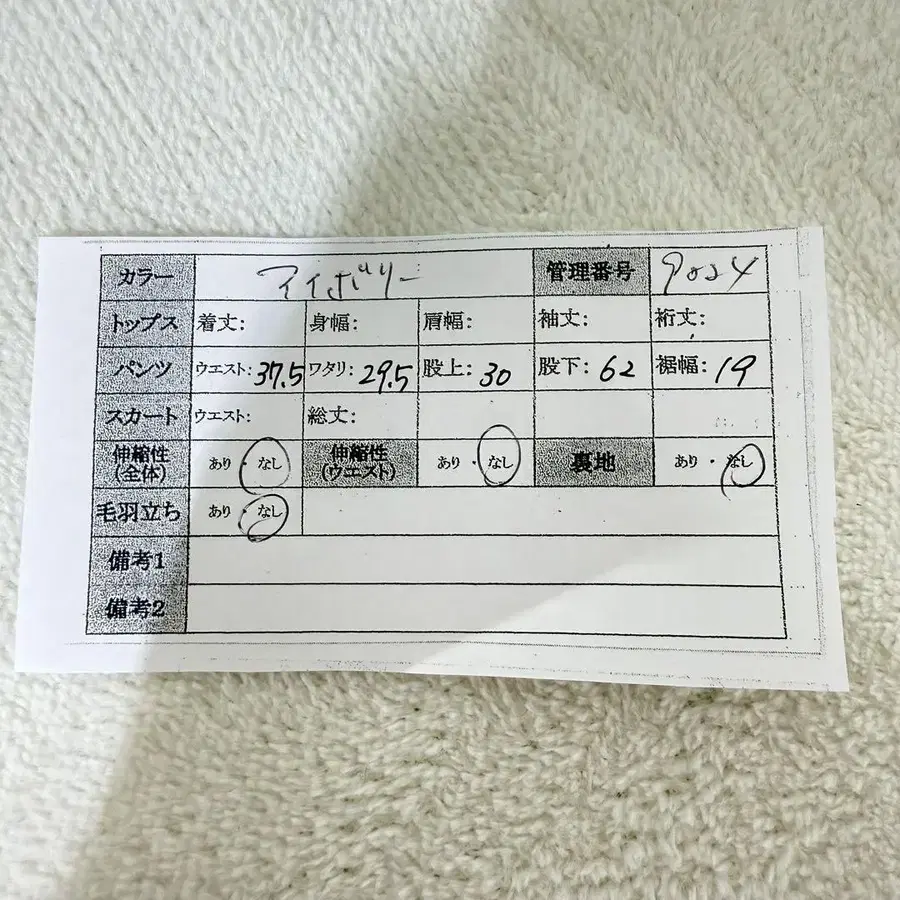 カラー アイボリー 管理番号 9024
トップス 着丈: 身幅: 肩幅: 袖丈: 裄丈:
パンツ ウエスト: 37.5 ワタリ: 29.5 股上: 30 股下: 62 裾幅: 19
スカート ウエスト: 総丈:
伸縮性(全体) あり・なし 伸縮性(ウエスト) あり・なし 裏地 あり・なし
毛羽立ち あり・なし
備考1
備考2